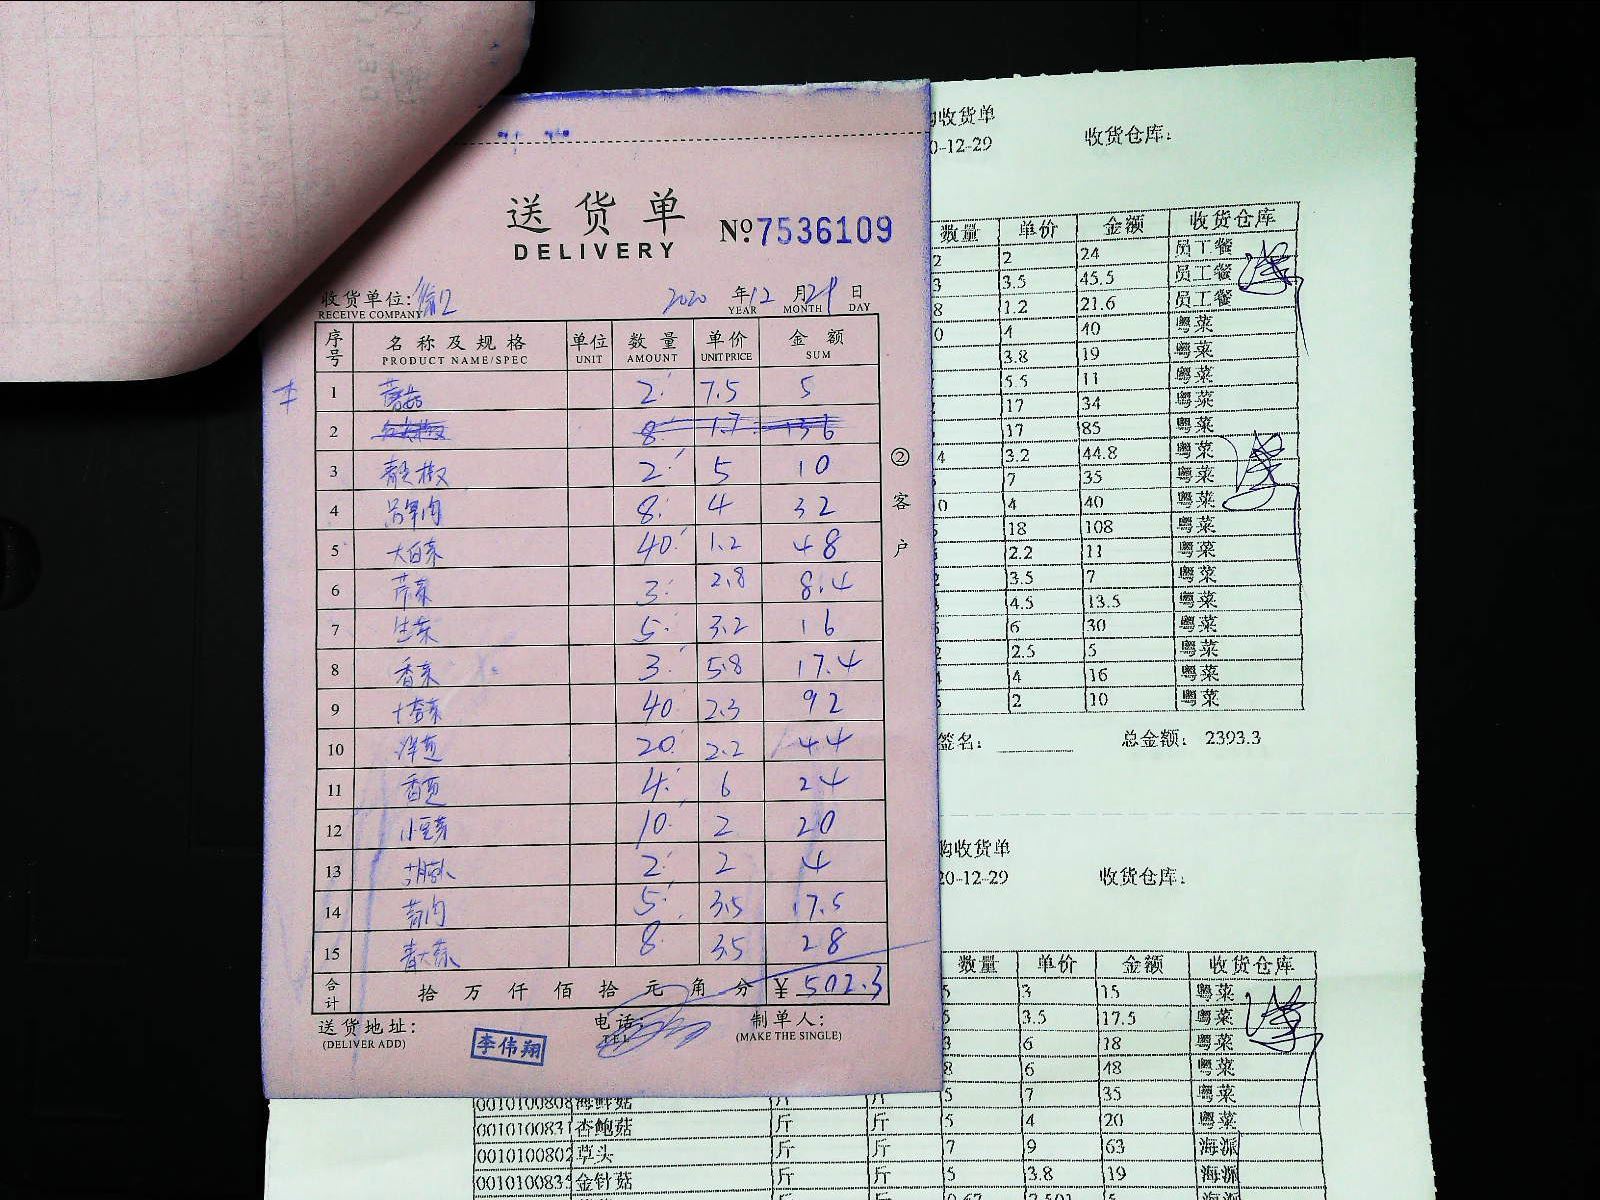 送货单
DELIVERY
No 7536109
收货单位:
RECEIVE COMPANY
2020 年 12 月 29 日
YEAR MONTH DAY
序号 名称及规格 单位 数量 单价 金额
PRODUCT NAME/SPEC UNIT AMOUNT UNIT PRICE SUM
1 蘑菇 2 7.5 5
2 8 1.7 136
3 青尖椒 2 5 10
4 8 4 32
5 大白菜 40 1.2 48
6 芹菜 3 2.8 8.4
7 生菜 5 3.2 16
8 香菜 3 5.8 17.4
9 40 2.3 92
10 洋葱 20 2.2 44
11 香葱 4 6 24
12 小豆芽 10 2 20
13 2 2 4
14 5 3.5 17.5
15 8 3.5 28
合计 拾 万 仟 佰 拾 元 角 分 ¥ 502.3
送货地址:
(DELIVER ADD)
李伟翔
电话:
TEL
制单人:
(MAKE THE SINGLE)
②客户
购收货单
0-12-29 收货仓库:
数量 单价 金额 收货仓库
2 2 24 员工餐
3 3.5 45.5 员工餐
8 1.2 21.6 员工餐
0 4 40 粤菜
3.8 19 粤菜
5.5 11 粤菜
17 34 粤菜
17 85 粤菜
4 3.2 44.8 粤菜
7 35 粤菜
0 4 40 粤菜
18 108 粤菜
2.2 11 粤菜
3.5 7 粤菜
4.5 13.5 粤菜
6 30 粤菜
2.5 5 粤菜
4 16 粤菜
2 10 粤菜
签名: 总金额: 2393.3
购收货单
20-12-29 收货仓库:
数量 单价 金额 收货仓库
5 3 15 粤菜
5 3.5 17.5 粤菜
3 6 18 粤菜
8 6 48 粤菜
0010100808 海鲜菇 斤 斤 5 7 35 粤菜
001010083 杏鲍菇 斤 斤 5 4 20 粤菜
0010100802 草头 斤 斤 7 9 63 海派
001010083 金针菇 斤 斤 5 3.8 19 海派